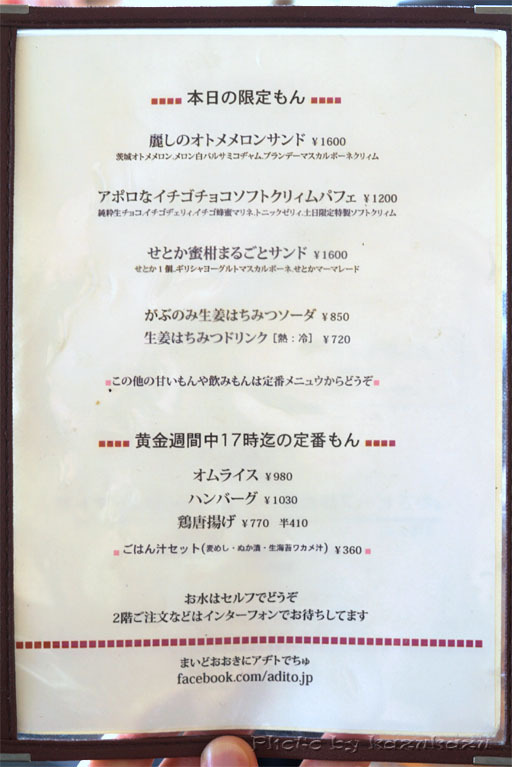 本日の限定もん
麗しのオトメメロンサンド ￥1600
茨城オトメメロン、メロン白バルサミコヂャム、ブランデーマスカルポーネクリィム
アポロなイチゴチョコソフトクリィムパフェ ￥1200
純粋生チョコ、イチゴヂェリィ、イチゴ蜂蜜マリネ、トニックゼリィ、土日限定特製ソフトクリィム
せとか蜜柑まるごとサンド ￥1600
せとか1個、ギリシャヨーグルトマスカルポーネ、せとかマーマレード
がぶのみ生姜はちみつソーダ ￥850
生姜はちみつドリンク［熱：冷］ ￥720
この他の甘いもんや飲みもんは定番メニュウからどうぞ
黄金週間中17時迄の定番もん
オムライス ￥980
ハンバーグ ￥1030
鶏唐揚げ ￥770 半410
ごはん汁セット(麦めし・ぬか漬・生海苔ワカメ汁) ￥360
お水はセルフでどうぞ
2階ご注文などはインターフォンでお待ちしてます
まいどおおきにアヂトでちゅ
facebook.com/adito.jp
Photo by kazukazu